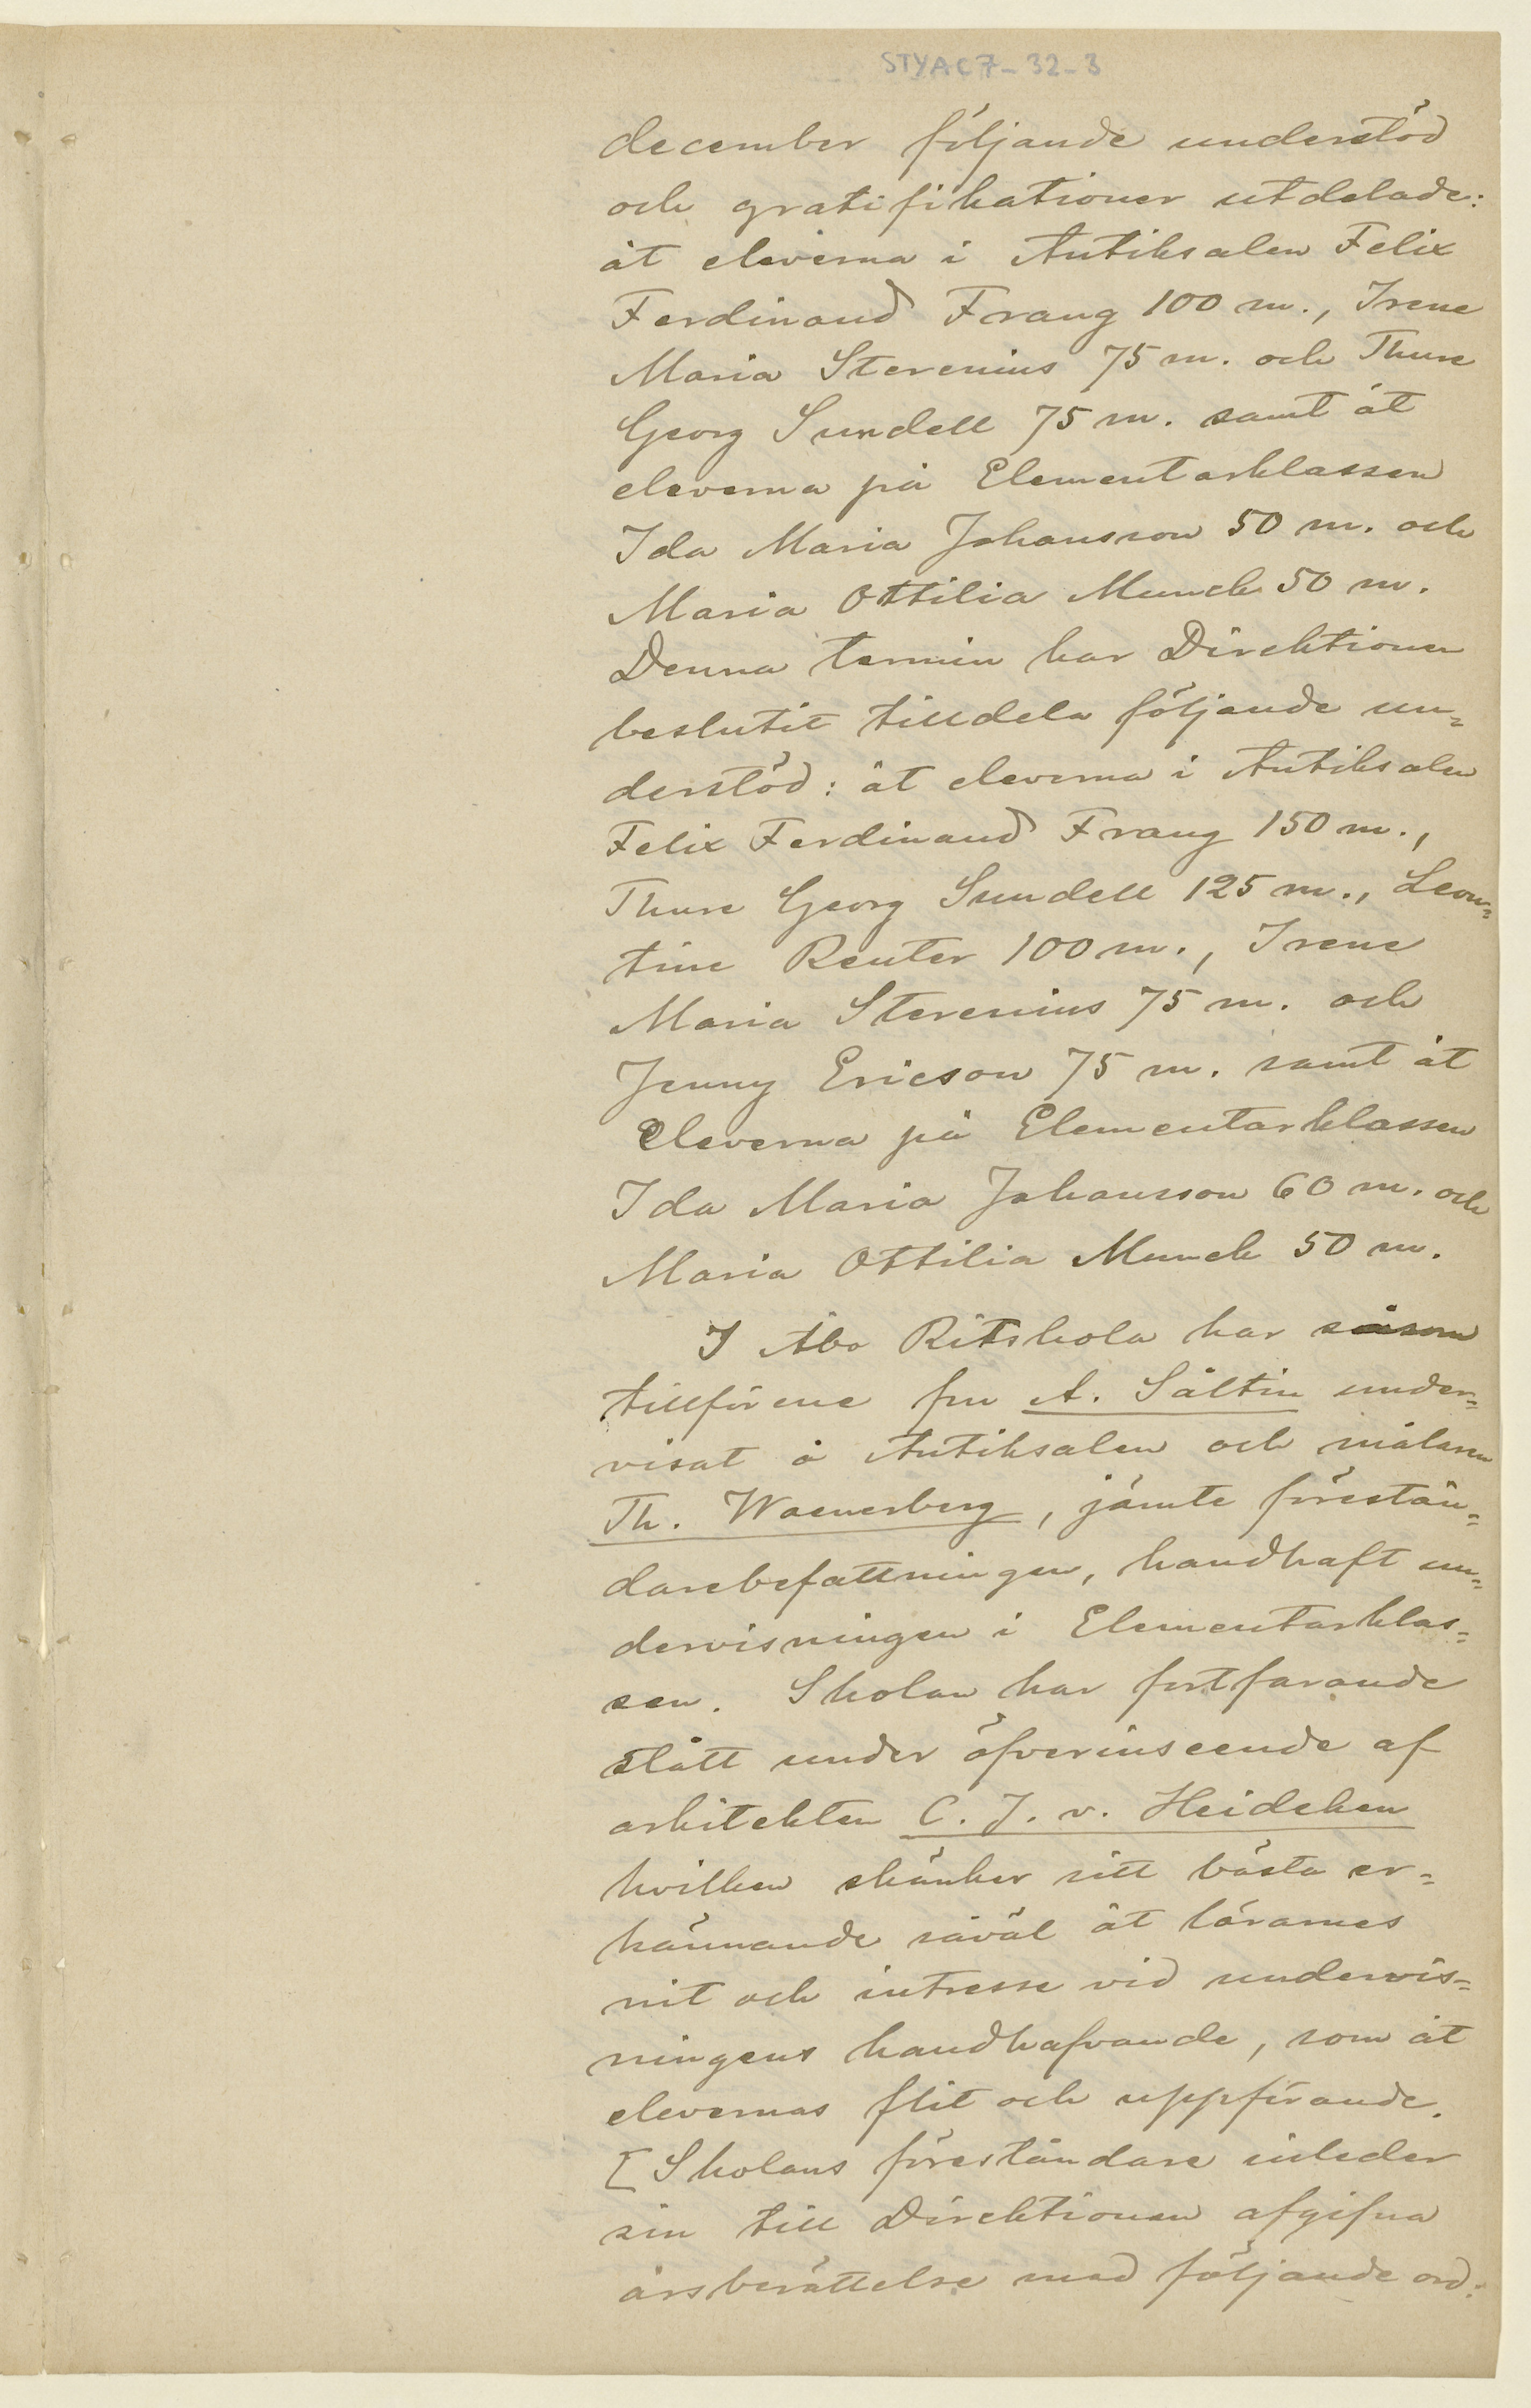 STYAC7-32-3
december följande understöd
och gratifikationer utdelade:
åt eleverna i Antiksalen Felix
Ferdinand Frang 100 m., Irene
Maria Stevenius 75 m. och Thure
Georg Sundell 75 m. samt åt
eleverna på Elementarklassen
Ida Maria Johansson 50 m. och
Maria Ottilia Munck 50 m.
Denna termin har Direktionen
beslutit tilldela följande un=
derstöd: åt eleverna i Antiksalen
Felix Ferdinand Frang 150 m.,
Thure Georg Sundell 125 m., Leon=
tine Reuter 100 m., Irene
Maria Stevenius 75 m. och
Jenny Ericson 75 m. samt åt
Eleverna på Elementarklassen
Ida Maria Johansson 60 m. och
Maria Ottilia Munck 50 m.
I Åbo Ritskola har såsom
tillförene fru A. Sältin under=
visat å Antiksalen och målaren
Th. Waenerberg, jämte förestån=
darebefattningen, handhaft un=
dervisningen i Elementarklas=
sen. Skolan har fortfarande
stått under öfverinseende af
arkitekten C. J. v. Heideken
hvilken skänker sitt bästa er=
kännande såväl åt lärarnes
nit och intresse vid undervis=
ningens handhafvande, som åt
elevernas flit och uppförande.
[Skolans föreståndare inleder
sin till Direktionen afgifna
årsberättelse med följande ord: